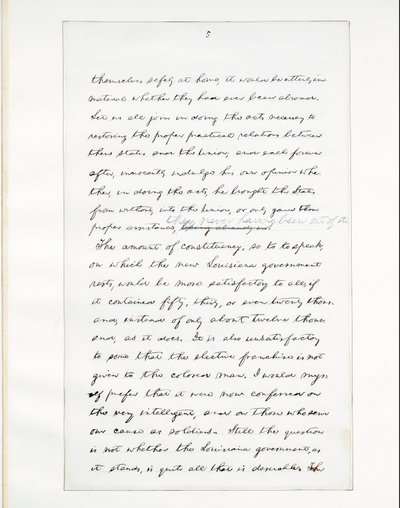 5
themselves safely at home, it would be utterly im
material whether they had ever been abroad.
Let us all join in doing the acts necessary to
restoring the proper practical relations between
these states and the Union; and each forever
after, innocently indulge his own opinion whe
ther, in doing the acts, he brought the States
from without, into the Union, or only gave them
they never having been out of it
proper assistance,
The amount of constituency, so to to speak,
on which the new Louisiana government
rests, would be more satisfactory to all, if
it contained fifty, thirty, or even twenty thous
and, instead of only about twelve thous
and, as it does. It is also unsatisfactory
to some that the elective franchise is not
given to the colored man. I would mys
elf prefer that it were now conferred on
the very intelligent, and on those who serve
our cause as soldiers. Still the question
is not whether the Louisiana government, as
it stands, is quite all that is desirable. The